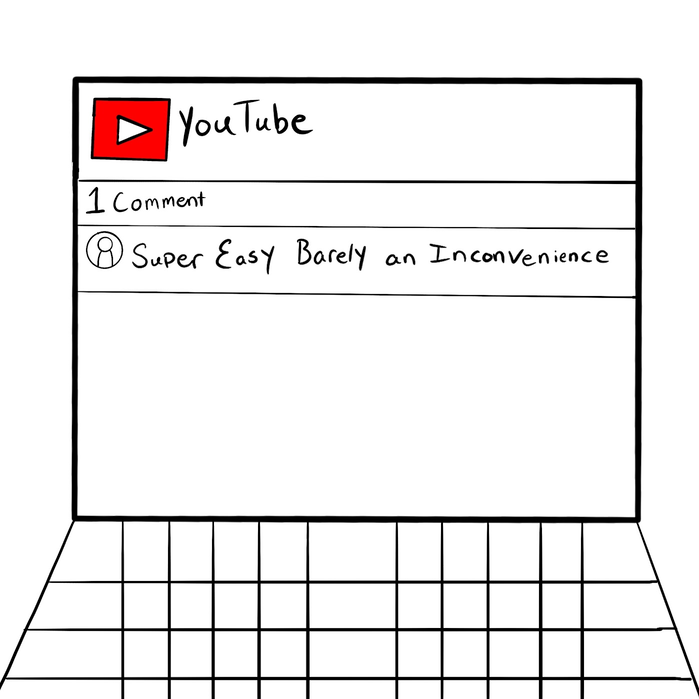 YouTube
1 Comment
Super Easy Barely an Inconvenience